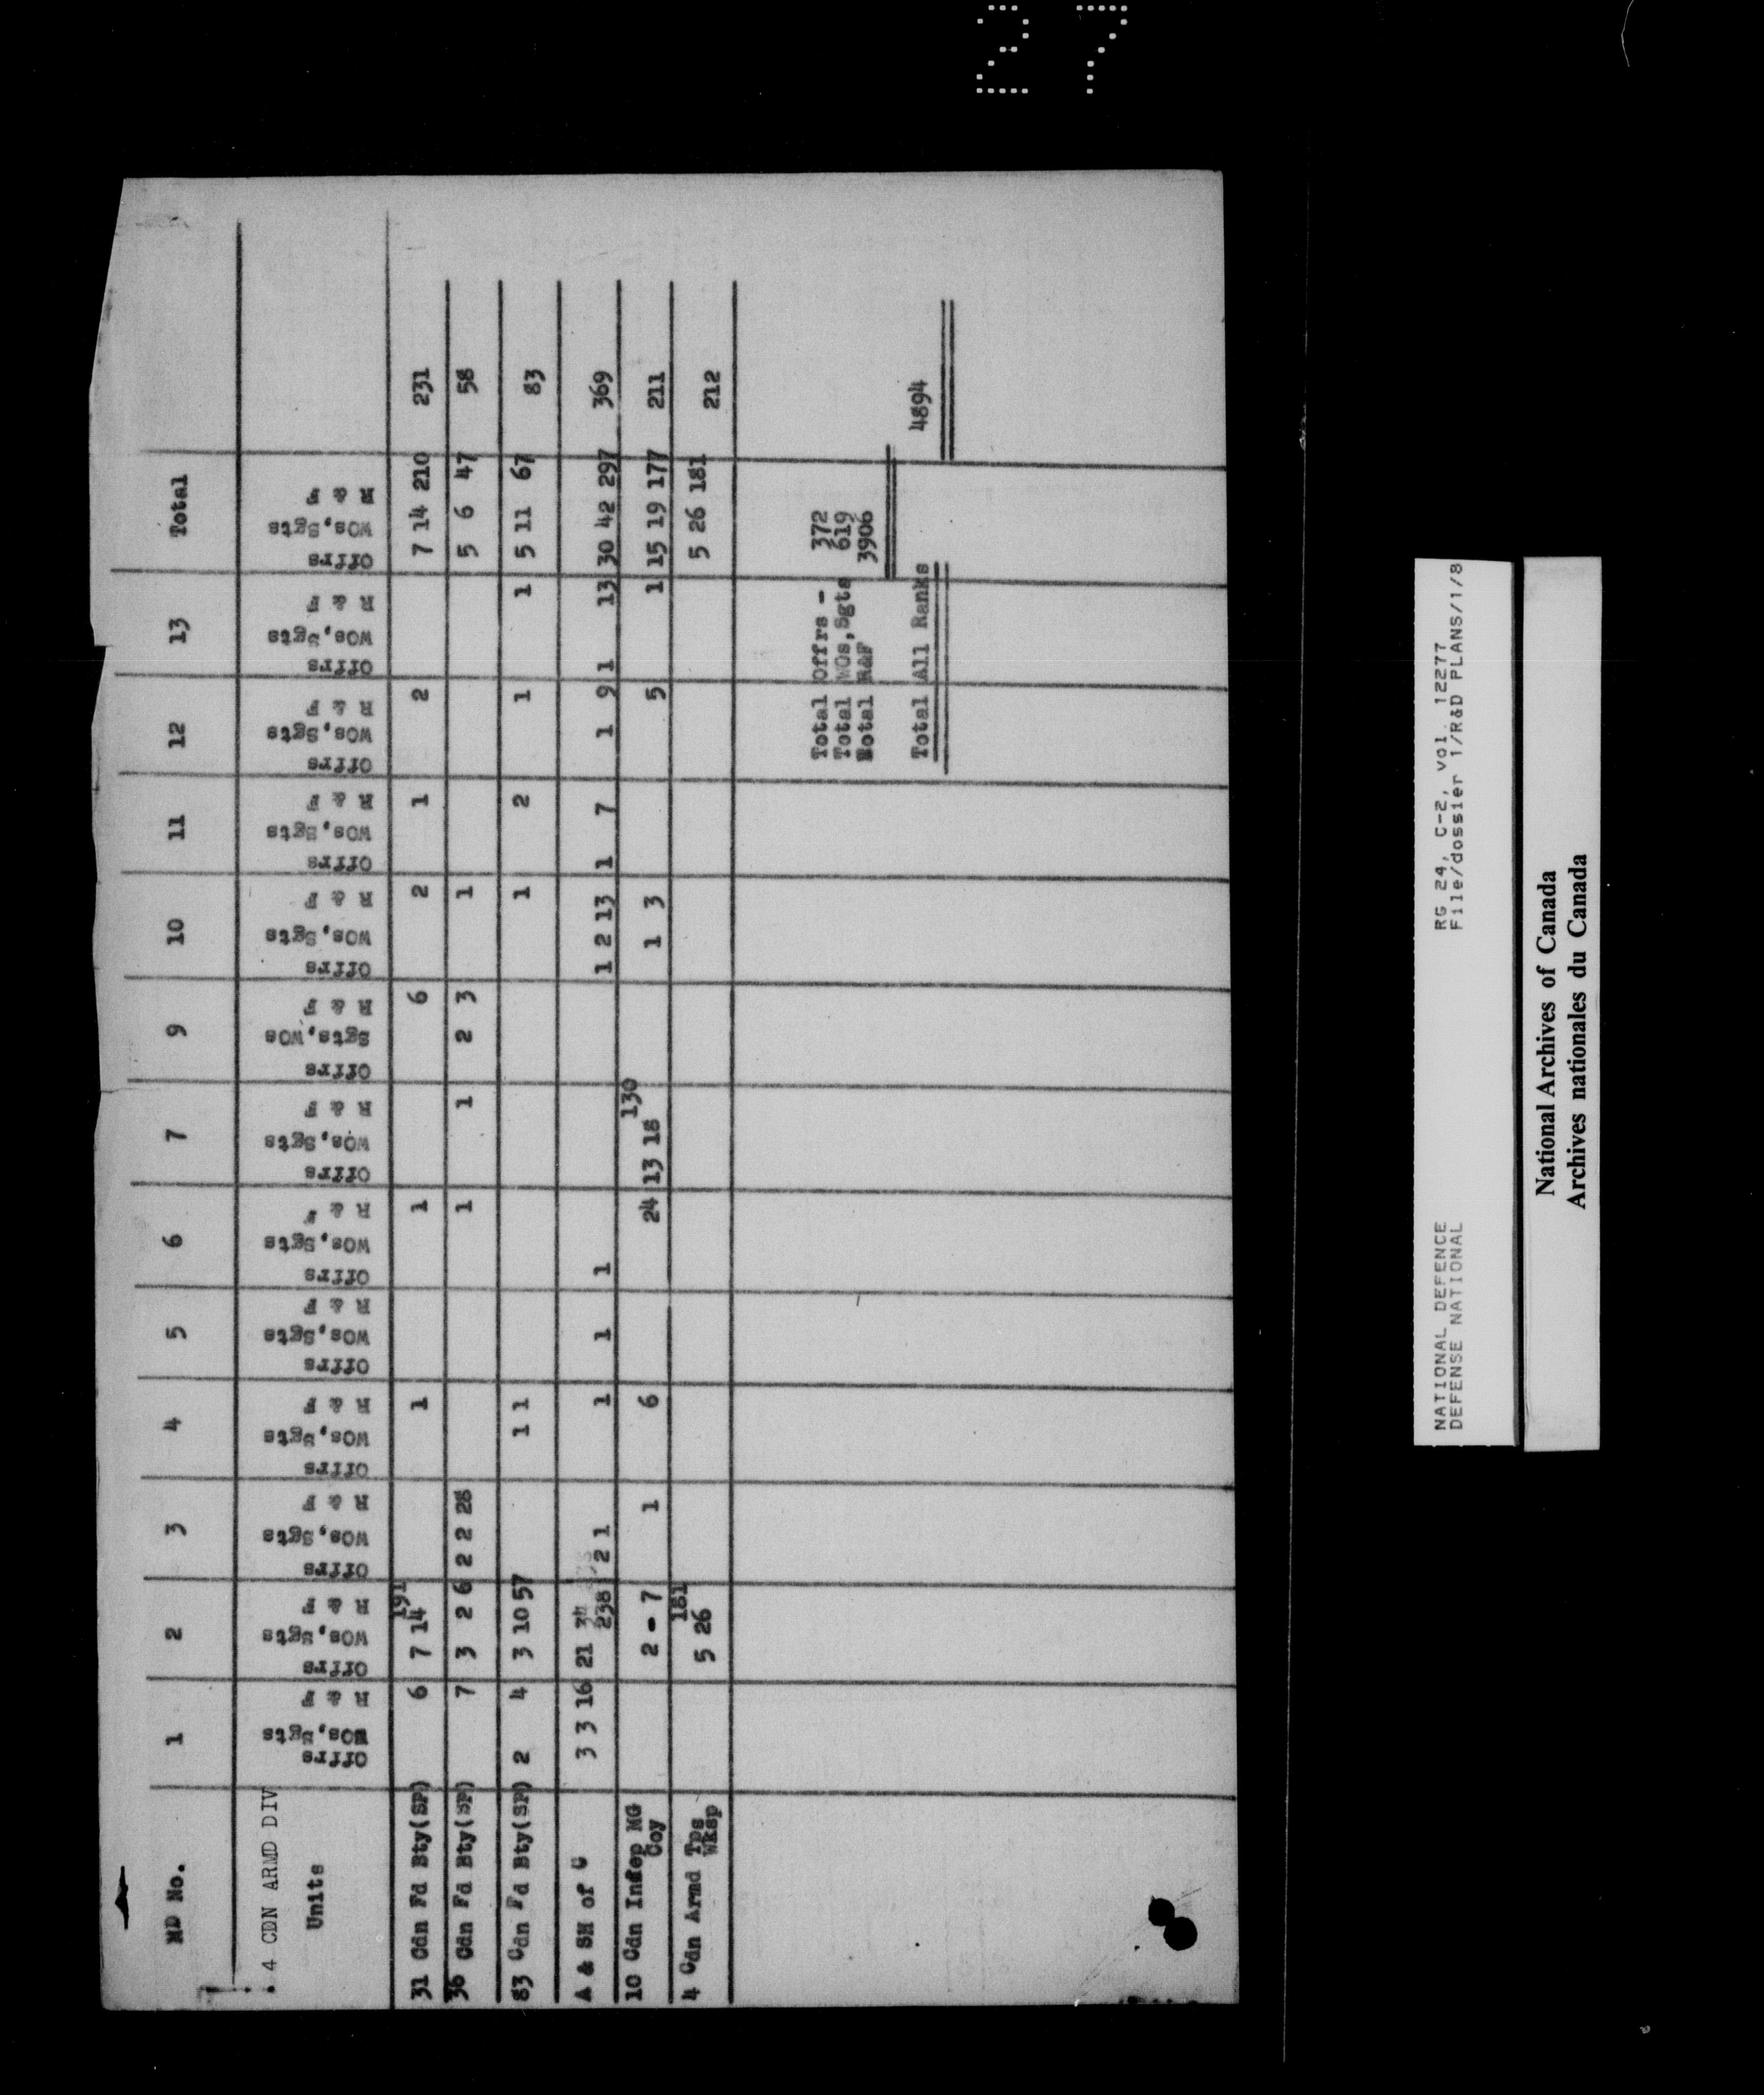 27
MD No. 1 2 3 4 5 6 7 9 10 11 12 13 Total
4 CDN ARMD DIV
Units Offrs WOs,Sgts R & F Offrs WOs,Sgts R & F Offrs WOs,Sgts R & F Offrs WOs,Sgts R & F Offrs WOs,Sgts R & F Offrs WOs,Sgts R & F Offrs WOs,Sgts R & F Offrs Sgts,WOs R & F Offrs WOs,Sgts R & F Offrs WOs,Sgts R & F Offrs WOs,Sgts R & F Offrs WOs,Sgts R & F Offrs WOs,Sgts R & F
31 Cdn Fd Bty(SP) 6 7 14 191 1 1 6 2 1 2 7 14 210 231
36 Cdn Fd Bty(SP) 7 3 2 6 2 2 28 1 1 2 3 1 5 6 47 58
83 Cdn Fd Bty(SP) 2 4 3 10 57 1 1 1 2 1 1 5 11 67 83
A & SH of C 3 3 16 21 34 238 2 1 1 1 1 1 2 13 1 7 1 9 1 13 30 42 297 369
10 Cdn Indep MG Coy 2 - 7 1 6 24 13 18 130 1 3 5 1 15 19 177 211
4 Cdn Armd Tps Wksp 5 26 181 5 26 181 212
Total Offrs - 372
Total WOs,Sgts 619
Total R&F 3906
Total All Ranks 4894
NATIONAL DEFENCE RG 24, C-2, vol. 12277
DEFENSE NATIONAL File/dossier 1/R&D PLANS/1/8
National Archives of Canada
Archives nationales du Canada